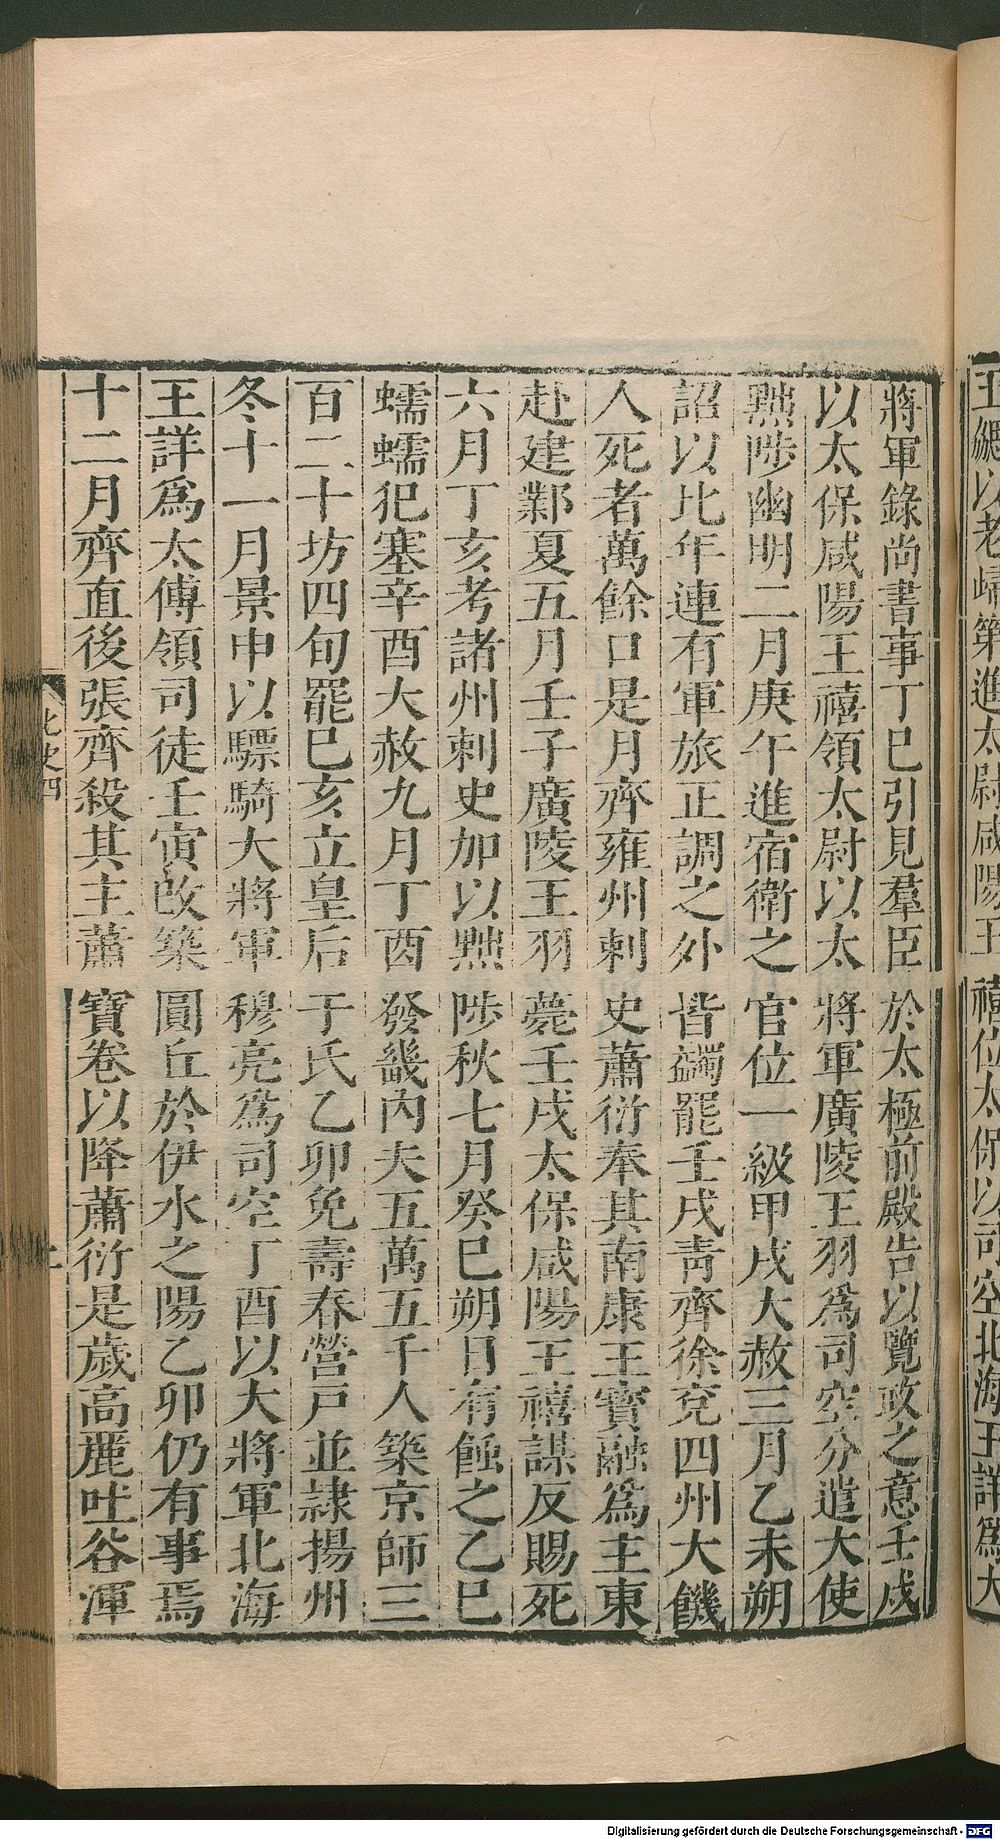 王勰以老歸第進太尉咸陽王禧位太保以司空北海王詳爲大
將軍錄尚書事丁巳引見羣臣於太極前殿告以覽政之意壬戌
以太保咸陽王禧領太尉以太將軍廣陵王羽爲司空分遣大使
黜陟幽明二月庚午進宿衛之官位一級甲戌大赦三月乙未朔
詔以比年連有軍旅正調之外皆蠲罷壬戌靑齊徐兗四州大饑
人死者萬餘口是月齊雍州刺史蕭衍奉其南康王寶融爲主東
赴建鄴夏五月壬子廣陵王羽薨壬戌太保咸陽王禧謀反賜死
六月丁亥考諸州刺史加以黜陟秋七月癸巳朔日有蝕之乙巳
蠕蠕犯塞辛酉大赦九月丁酉發畿內夫五萬五千人築京師三
百二十坊四旬罷巳亥立皇后于氏乙卯免壽春營戸並隷揚州
冬十一月景申以驃騎大將軍穆亮爲司空丁酉以大將軍北海
王詳爲太傅領司徒壬寅改築圓丘於伊水之陽乙卯仍有事焉
十二月齊直後張齊殺其主蕭寶卷以降蕭衍是歲高麗吐谷渾
北史四
Digitalisierung gefördert durch die Deutsche Forschungsgemeinschaft - DFG